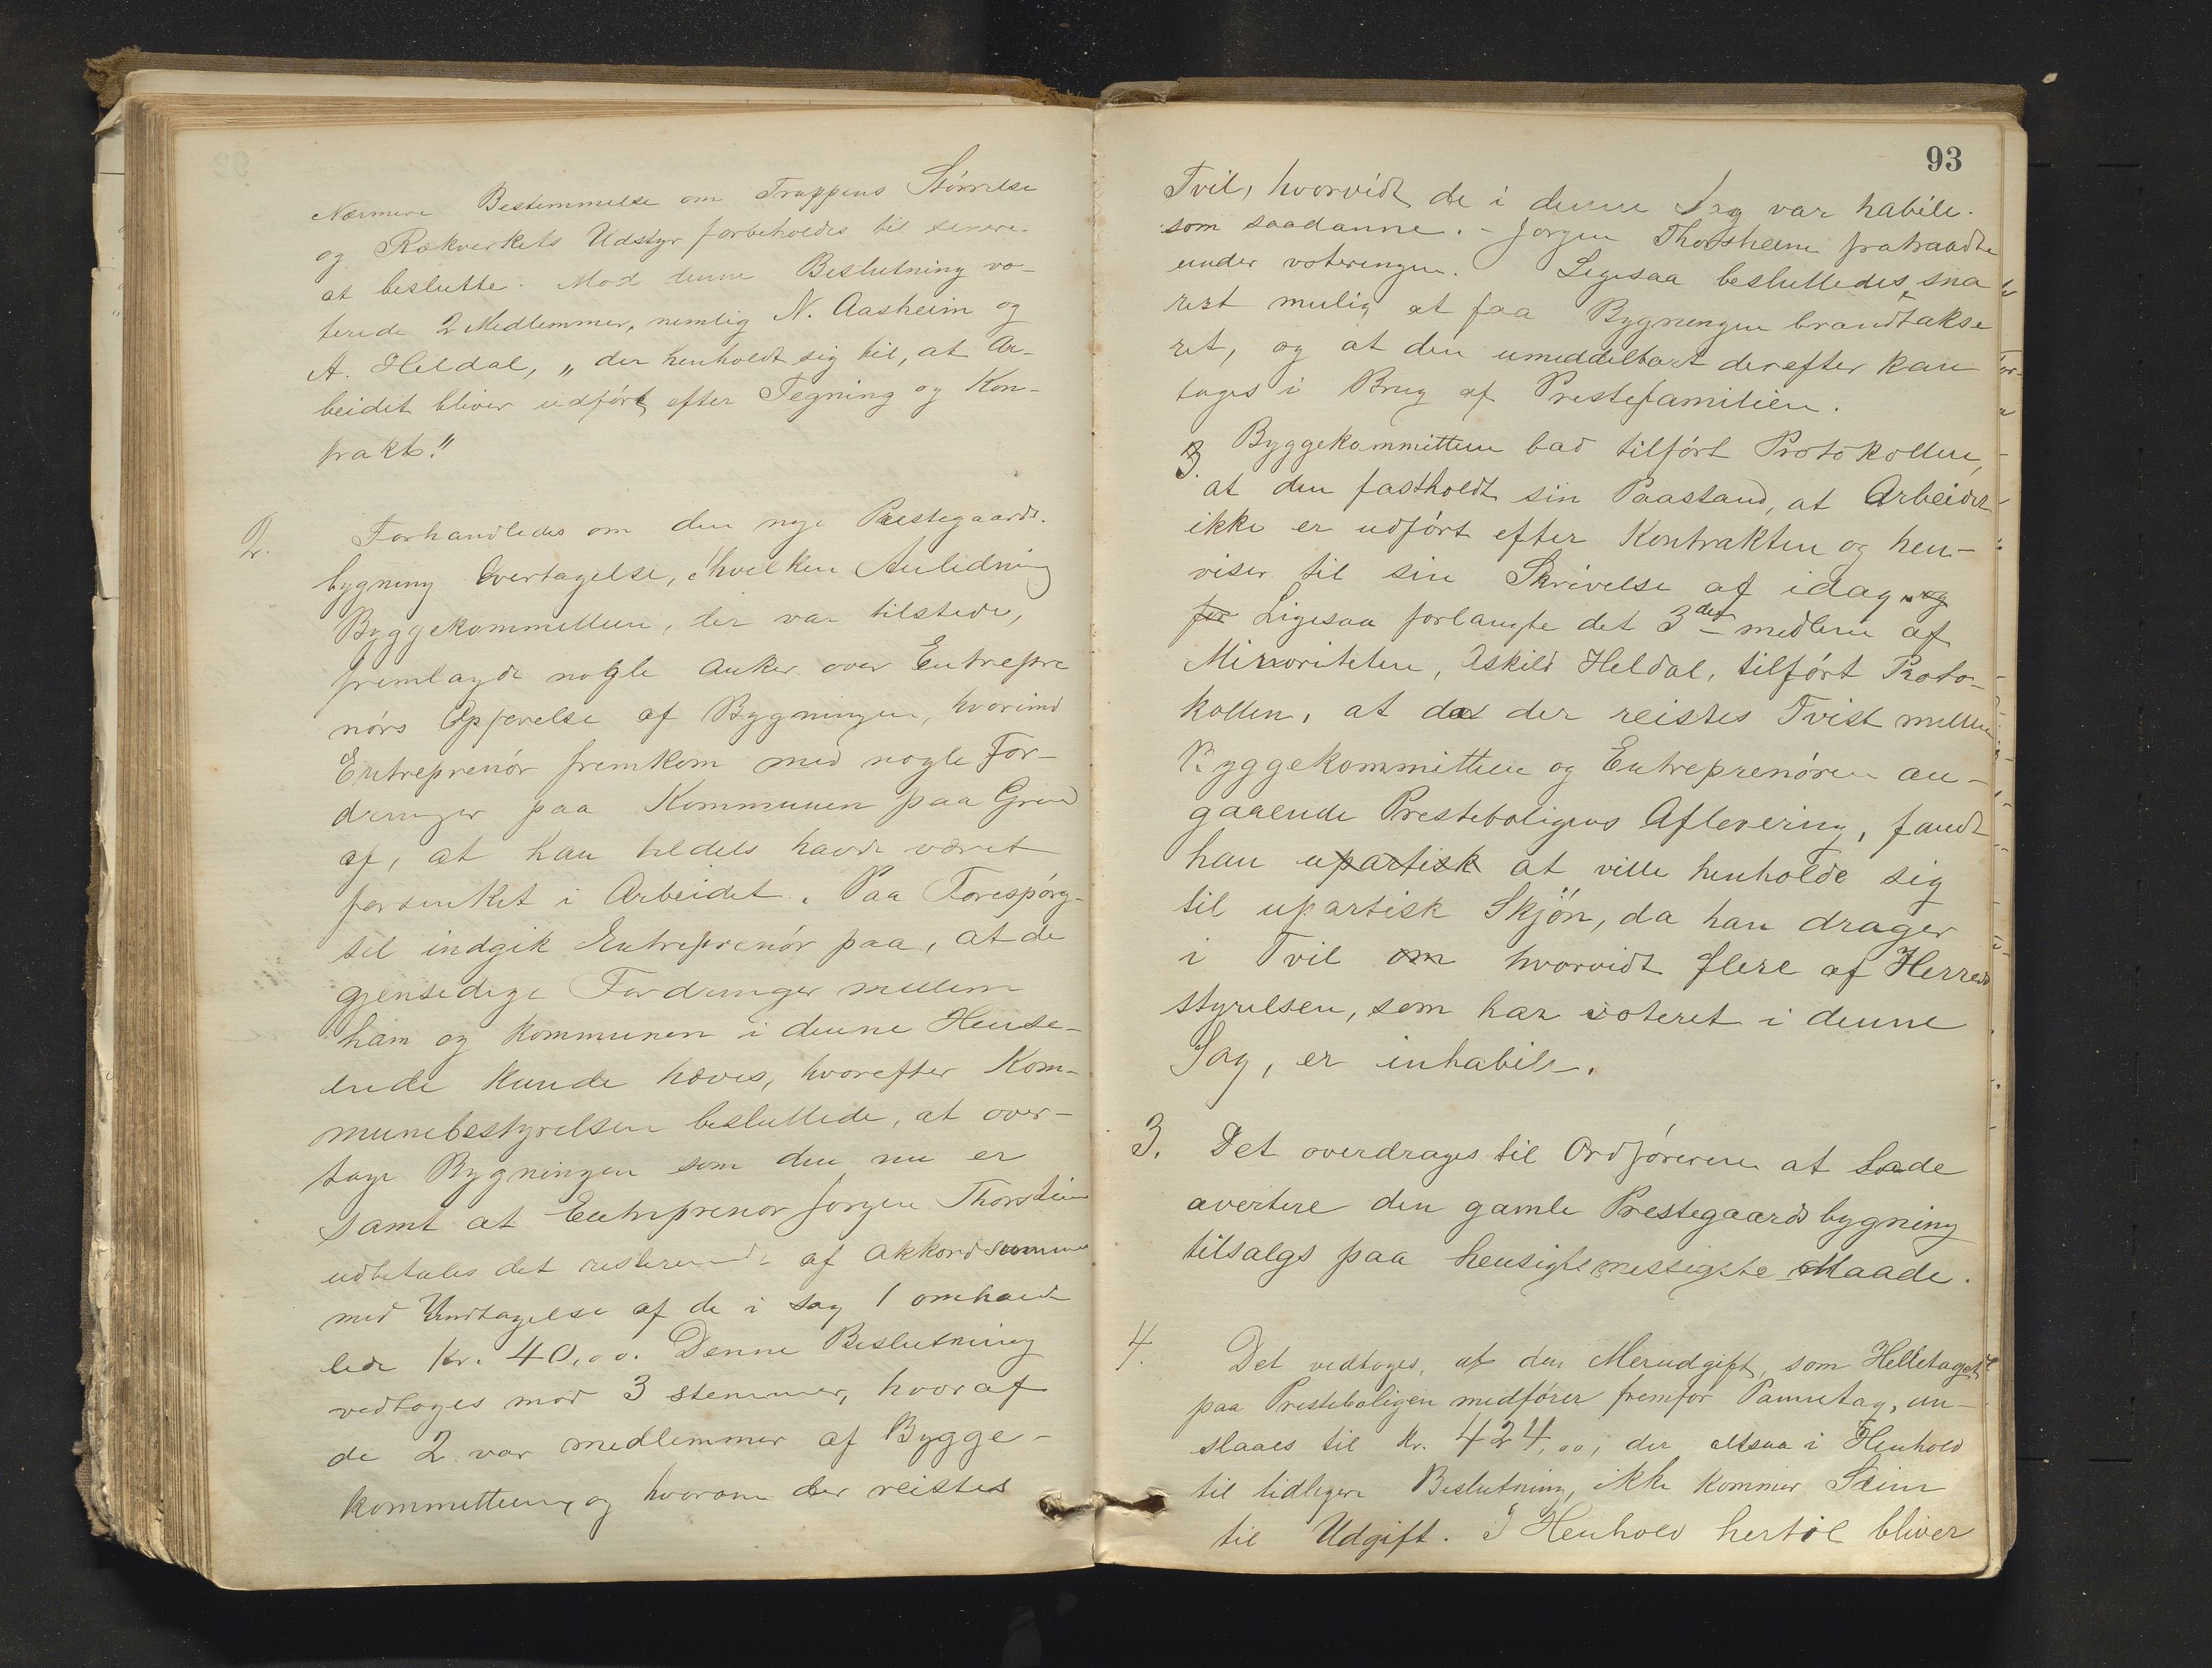 Nærmere Bestemmelse om Trappens Størrelse
og Rækverkets Udstyr forbeholdes til senere
at beslutte. Mod denne Beslutning vo-
terede 2 Medlemmer, nemlig N. Aasheim og
A. Heldal, „der henholdt sig til, at Ar-
beidet bliver udført efter Tegning og Kon-
trakt."
2. Forhandledes om den nye Prestegaards-
bygning Overtagelse, i hvilken Anledning
Byggekommitteen, der var tilstede,
fremlagde nogle Anker over Entrepre
nørs Opførelse af Bygningen, hvorimod
Entreprenør fremkom med nogle For-
dringer paa Kommunen paa Grund
af, at han tildels havde været
forsinket i Arbeidet. Paa Forespørg-
sel indgik Entreprenør paa, at de
gjensidige Fordringer mellem
ham og Kommunen i denne Hense-
ende kunde hæves, hvorefter Kom-
munebestyrelsen besluttede, at over-
tage Bygningen som den nu er
samt at Entreprenør Jørgen Thorsheim
udbetales det resterende af Akkordsummen
med Undtagelse af de i Sag 1 omhand
lede Kr. 40,00. Denne Beslutning
vedtoges mod 3 stemmer, hvoraf
de 2 var medlemmer af Bygge-
kommitteen, og hvorom der reistes
93
Tvil, hvorvidt de i denne Sag var habile
som saadanne. - Jørgen Thorsheim fratraadte
under voteringen. Ligesaa besluttedes, sna
rest mulig at faa Bygningen brandtakse
ret, og at den umiddelbart derefter kan
tages i Brug af Prestefamilien.
3. Byggekommitteen bad tilført Protokollen,
at den fastholdt sin Paastand, at Arbeidet
ikke er udført efter Kontrakten og hen-
viser til sin Skrivelse af idag. og
for Ligesaa forlangte det 3die medlem af
Minoriteten, Askild Heldal, tilført Proto-
kollen, at da der reistes Tvist mellem
Byggekommitteen og Entreprenøren an-
gaaende Presteboligens Aflevering, fandt
han upartisk at ville henholde sig
til upartisk Skjøn, da han drager
i Tvil om hvorvidt flere af Herreds
styrelsen, som har voteret i denne
Sag, er inhabile.
3. Det overdrages til Ordføreren at lade
avertere den gamle Prestegaardsbygning
tilsalgs paa hensigtsmessigste Maade.
4. Det vedtoges, at den Merudgift, som Helletaget
paa Presteboligen medfører fremfor Pannetag, an-
slaaes til Kr. 424,00, der altsaa i Henhold
til tidligere Beslutning, ikke kommer Seim
til Udgift. I Henhold hertil bliver